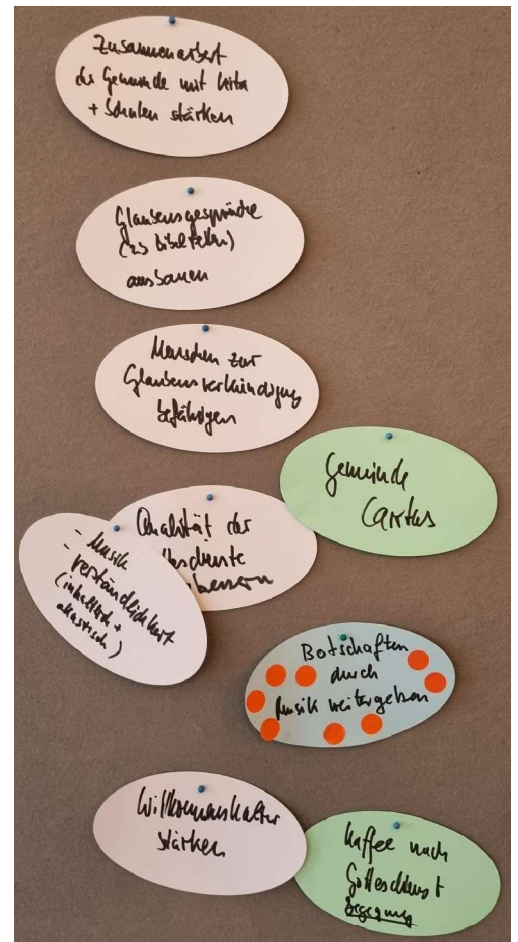 Zusammenarbeit
der Gemeinde mit Kita
+ Schulen stärken
Glaubensgespräche
(zs Bibelteilen)
ausbauen
Menschen zur
Glaubensverkündigung
befähigen
Gemeinde
Caritas
Qualität der
- Musik
- Verständlichkeit
(inhaltlich +
akustisch)
Botschaften
durch
Musik weitergeben
Willkommenskultur
stärken
Kaffee nach
Gottesdienst
Begegnung